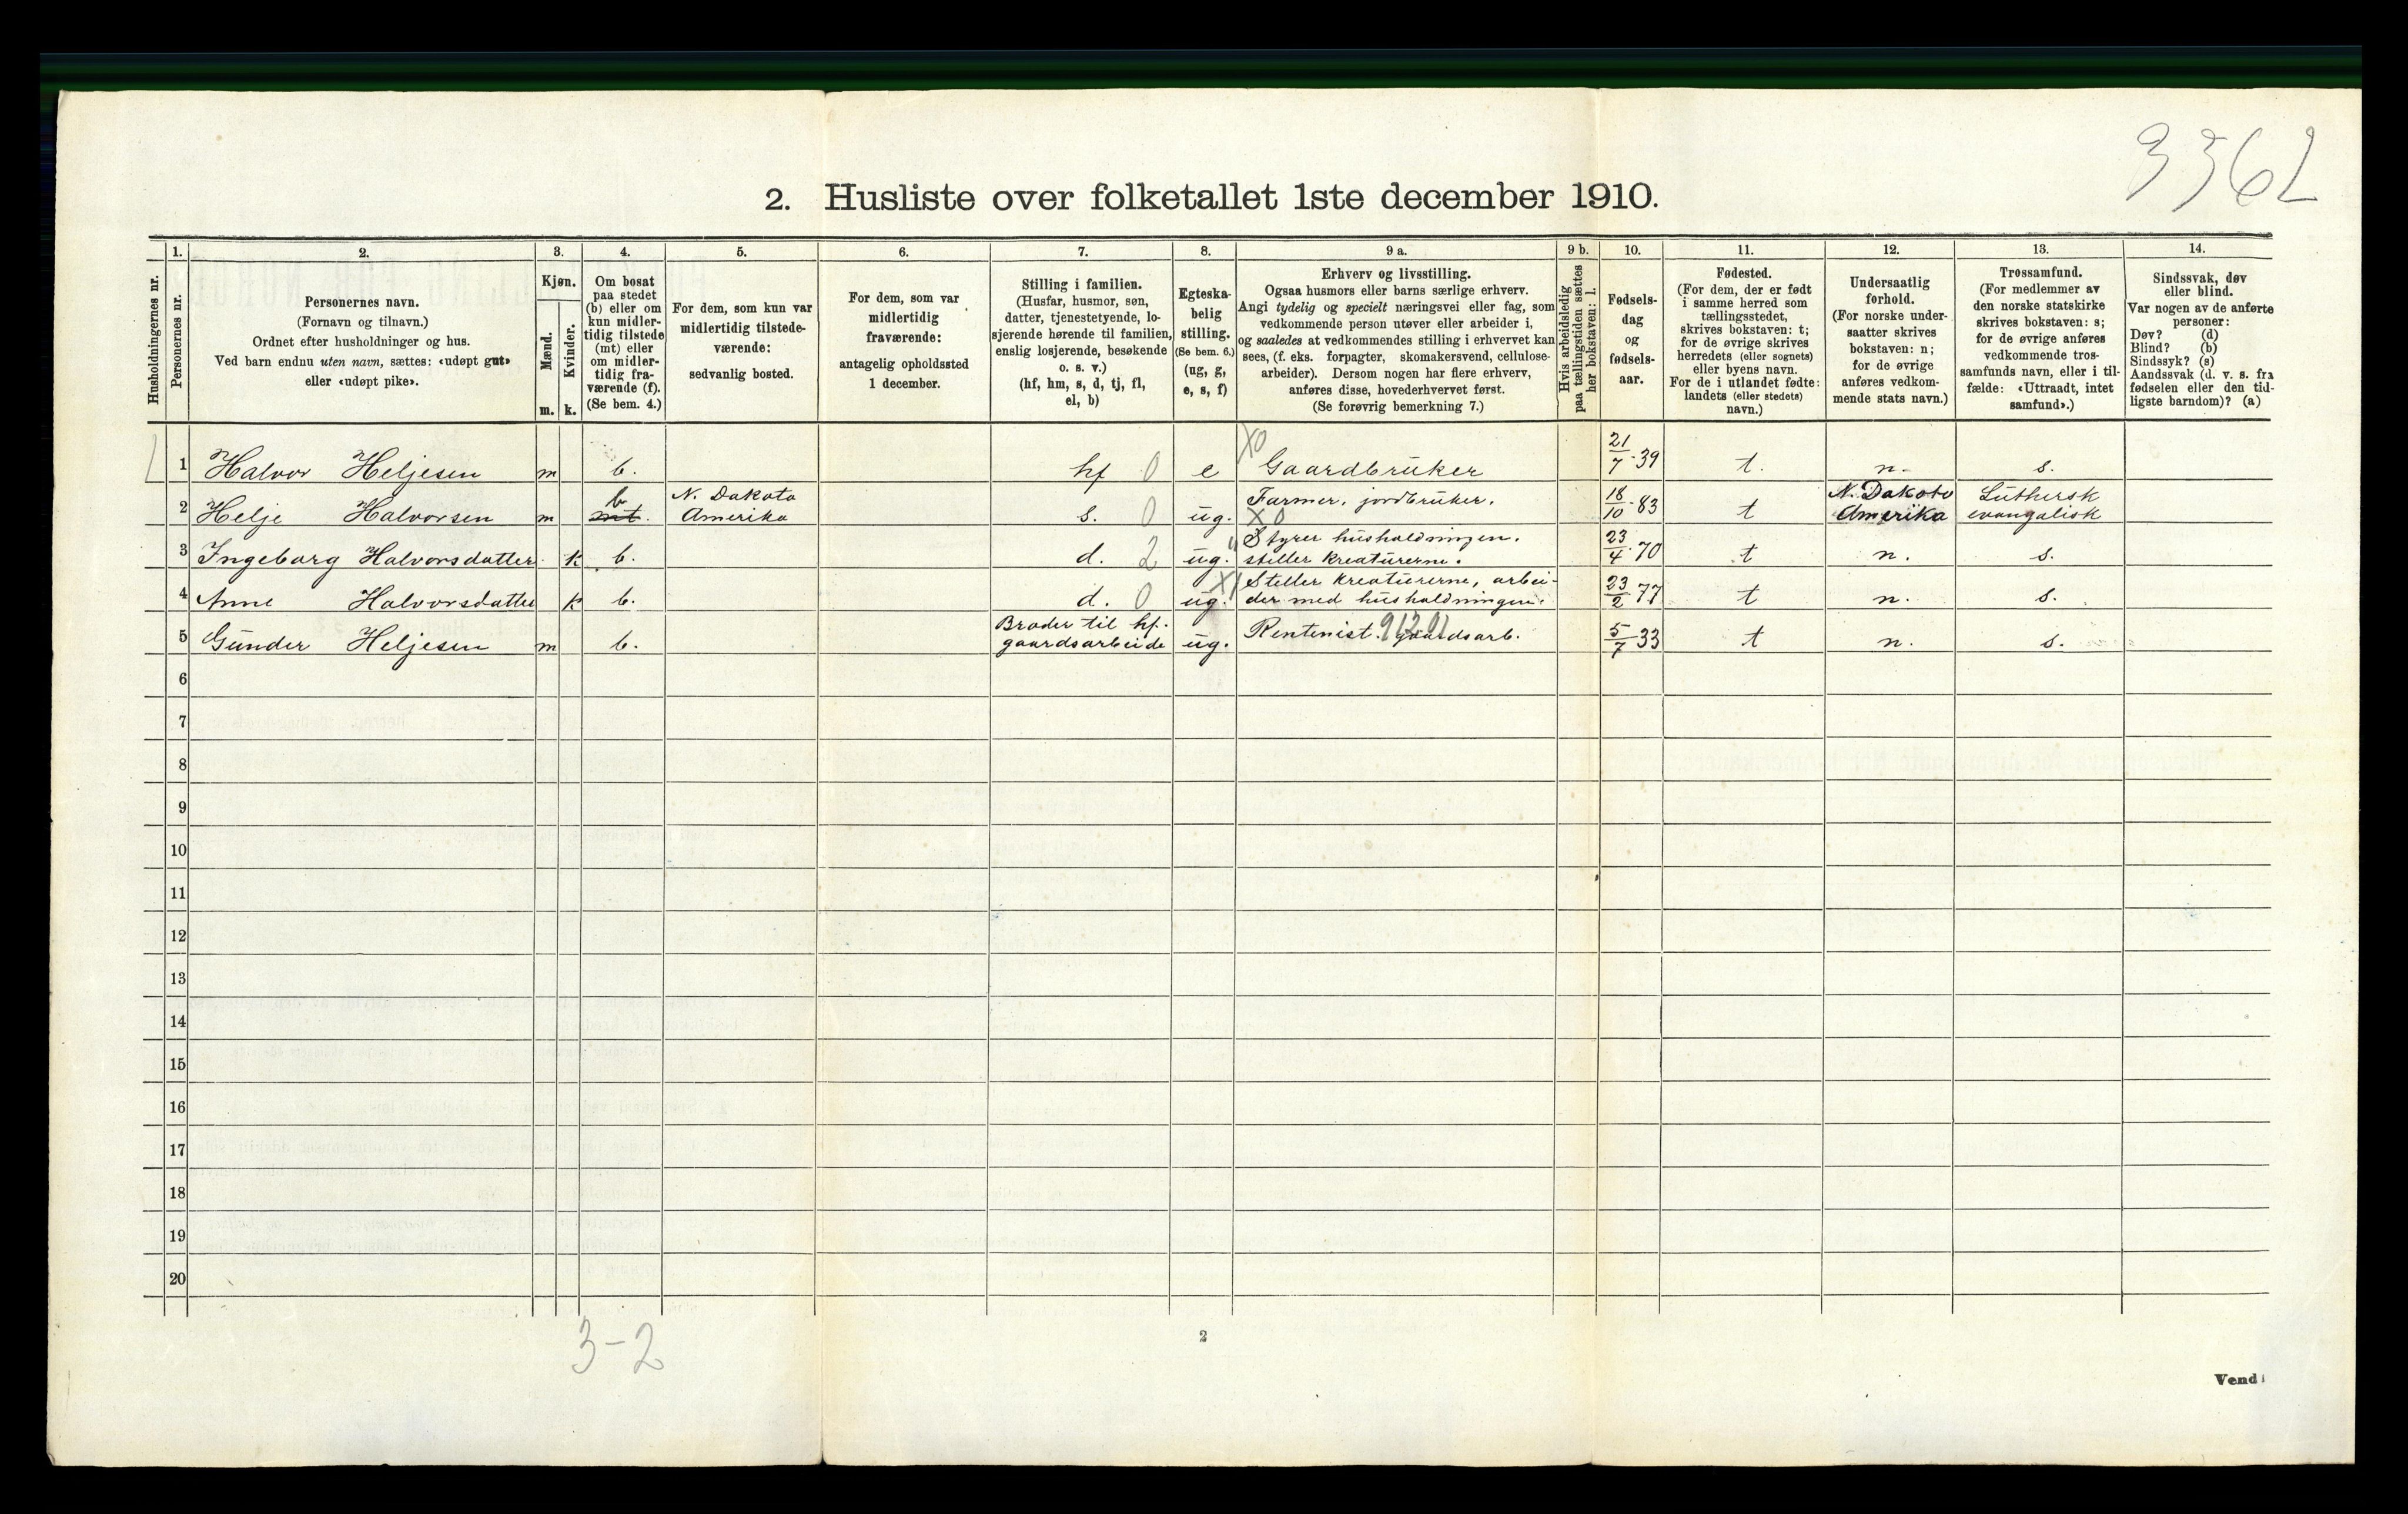 3362
2. Husliste over folketallet 1ste december 1910.
Husholdningernes nr.
1.
Personernes nr.
2.
Personernes navn.
(Fornavn og tilnavn.)
Ordnet efter husholdninger og hus.
Ved barn endnu uten navn, sættes: «udøpt gut»
eller «udøpt pike».
3.
Kjøn.
Mænd.
Kvinder.
m. k.
4.
Om bosat
paa stedet
(b) eller om
kun midler-
tidig tilstede
(mt) eller
om midler-
tidig fra-
værende (f).
(Se bem. 4.)
5.
For dem, som kun var
midlertidig tilstede-
værende:
sedvanlig bosted.
6.
For dem, som var
midlertidig
fraværende:
antagelig opholdssted
1 december.
7.
Stilling i familien.
(Husfar, husmor, søn,
datter, tjenestetyende, lo-
sjerende hørende til familien,
enslig losjerende, besøkende
o. s. v.)
(hf, hm, s, d, tj, fl,
el, b)
8.
Egteska-
belig
stilling.
(Se bem. 6.)
(ug, g,
e, s, f)
9 a.
Erhverv og livsstilling.
Ogsaa husmors eller barns særlige erhverv.
Angi tydelig og specielt næringsvei eller fag, som
vedkommende person utøver eller arbeider i,
og saaledes at vedkommendes stilling i erhvervet kan
sees, (f. eks. forpagter, skomakersvend, cellulose-
arbeider). Dersom nogen har flere erhverv,
anføres disse, hovederhvervet først.
(Se forøvrig bemerkning 7.)
9 b.
Hvis arbeidsledig
paa tællingstiden sættes
her bokstaven: l.
10.
Fødsels-
dag
og
fødsels-
aar.
11.
Fødested.
(For dem, der er født
i samme herred som
tællingsstedet,
skrives bokstaven: t;
for de øvrige skrives
herredets (eller sognets)
eller byens navn.
For de i utlandet fødte:
landets (eller stedets)
navn.)
12.
Undersaatlig
forhold.
(For norske under-
saatter skrives
bokstaven: n;
for de øvrige
anføres vedkom-
mende stats navn.)
13.
Trossamfund.
(For medlemmer av
den norske statskirke
skrives bokstaven: s;
for de øvrige anføres
vedkommende tros-
samfunds navn, eller i til-
fælde: «Uttraadt, intet
samfund».)
14.
Sindssvak, døv
eller blind.
Var nogen av de anførte
personer:
Døv? (d)
Blind? (b)
Sindssyk? (s)
Aandssvak (d. v. s. fra
fødselen eller den tid-
ligste barndom)? (a)
1 Halvor Heljesen m b. hf 0 e X0 Gaardbruker 21/7-39 t. n. s.
2 Helje Halvorsen m b mt. N. Dakota Amerika s. 0 ug. Farmer, jordbruker. X0 18/10-83 t N. Dakota Amerika Luthersk evangelisk
3 Ingeborg Halvorsdatter k b. d. 2 ug. Styrer husholdningen. steller kreaturerne. 23/4-70 t n. s.
4 Anne Halvorsdatter k b. d. 0 ug. Steller kreaturerne, arbei- der med husholdningen. 23/2 77 t n. s.
5 Gunder Heljesen m b. Broder til hf. gaardsarbeide ug. Rentenist. gaardsarb. 5/7-33 t n. s.
6
7
8
9
10
11
12
13
14
15
16
17
18
19
20
3-2
2
Vend